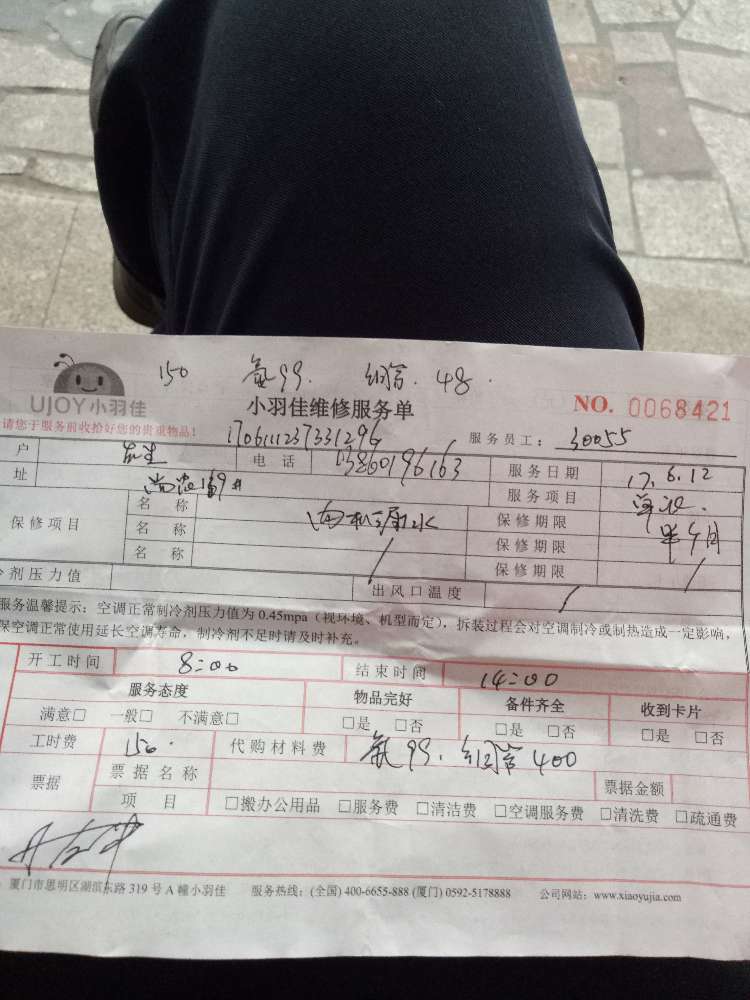 150 氟99. 铜管. 48.
UJOY小羽佳 小羽佳维修服务单 NO. 0068421
请您于服务前收拾好您的贵重物品! 服务员工: 30055
170611123733129
户 电话 13860196163 服务日期 17.6.12
址 服务项目
保修项目 名称 内机漏水 保修期限 半个月
名称 保修期限
名称 保修期限
剂压力值 出风口温度
服务温馨提示:空调正常制冷剂压力值为0.45mpa(视环境、机型而定),拆装过程会对空调制冷或制热造成一定影响,
保空调正常使用延长空调寿命,制冷剂不足时请及时补充。
开工时间 8:00 结束时间 14:00
服务态度 物品完好 备件齐全 收到卡片
满意□ 一般□ 不满意□ □是 □否 □是 □否 □是 □否
工时费 150. 代购材料费 氟99. 铜管400
票据 票据名称 票据金额
项目 □搬办公用品 □服务费 □清洁费 □空调服务费 □清洗费 □疏通费
厦门市思明区湖滨东路319号A幢小羽佳 服务热线:(全国)400-6655-888 (厦门)0592-5178888 公司网站:www.xiaoyujia.com